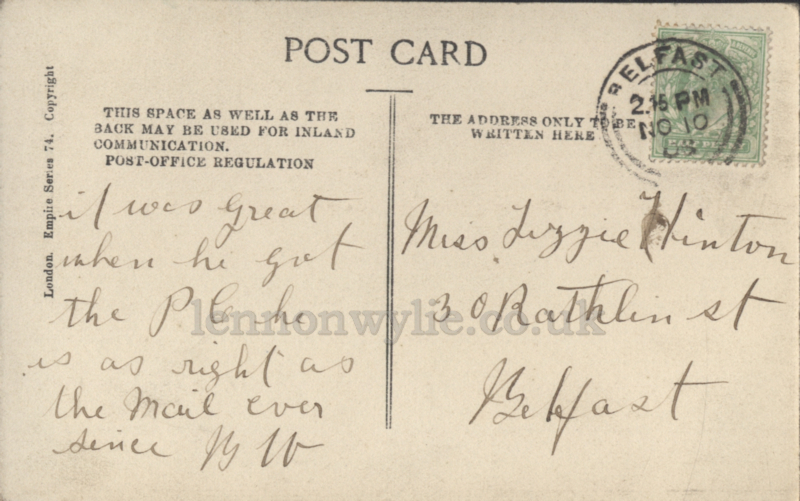 POST CARD
London. Empire Series 74. Copyright
THIS SPACE AS WELL AS THE
BACK MAY BE USED FOR INLAND
COMMUNICATION.
POST-OFFICE REGULATION
THE ADDRESS ONLY TO BE
WRITTEN HERE
BELFAST
2.15 PM
NO 10
it was great
when he got
the P C he
is as right as
the Mail ever
since B W
Miss Lizzie Hinton
30 Rathlin st
Belfast
lennonwylie.co.uk